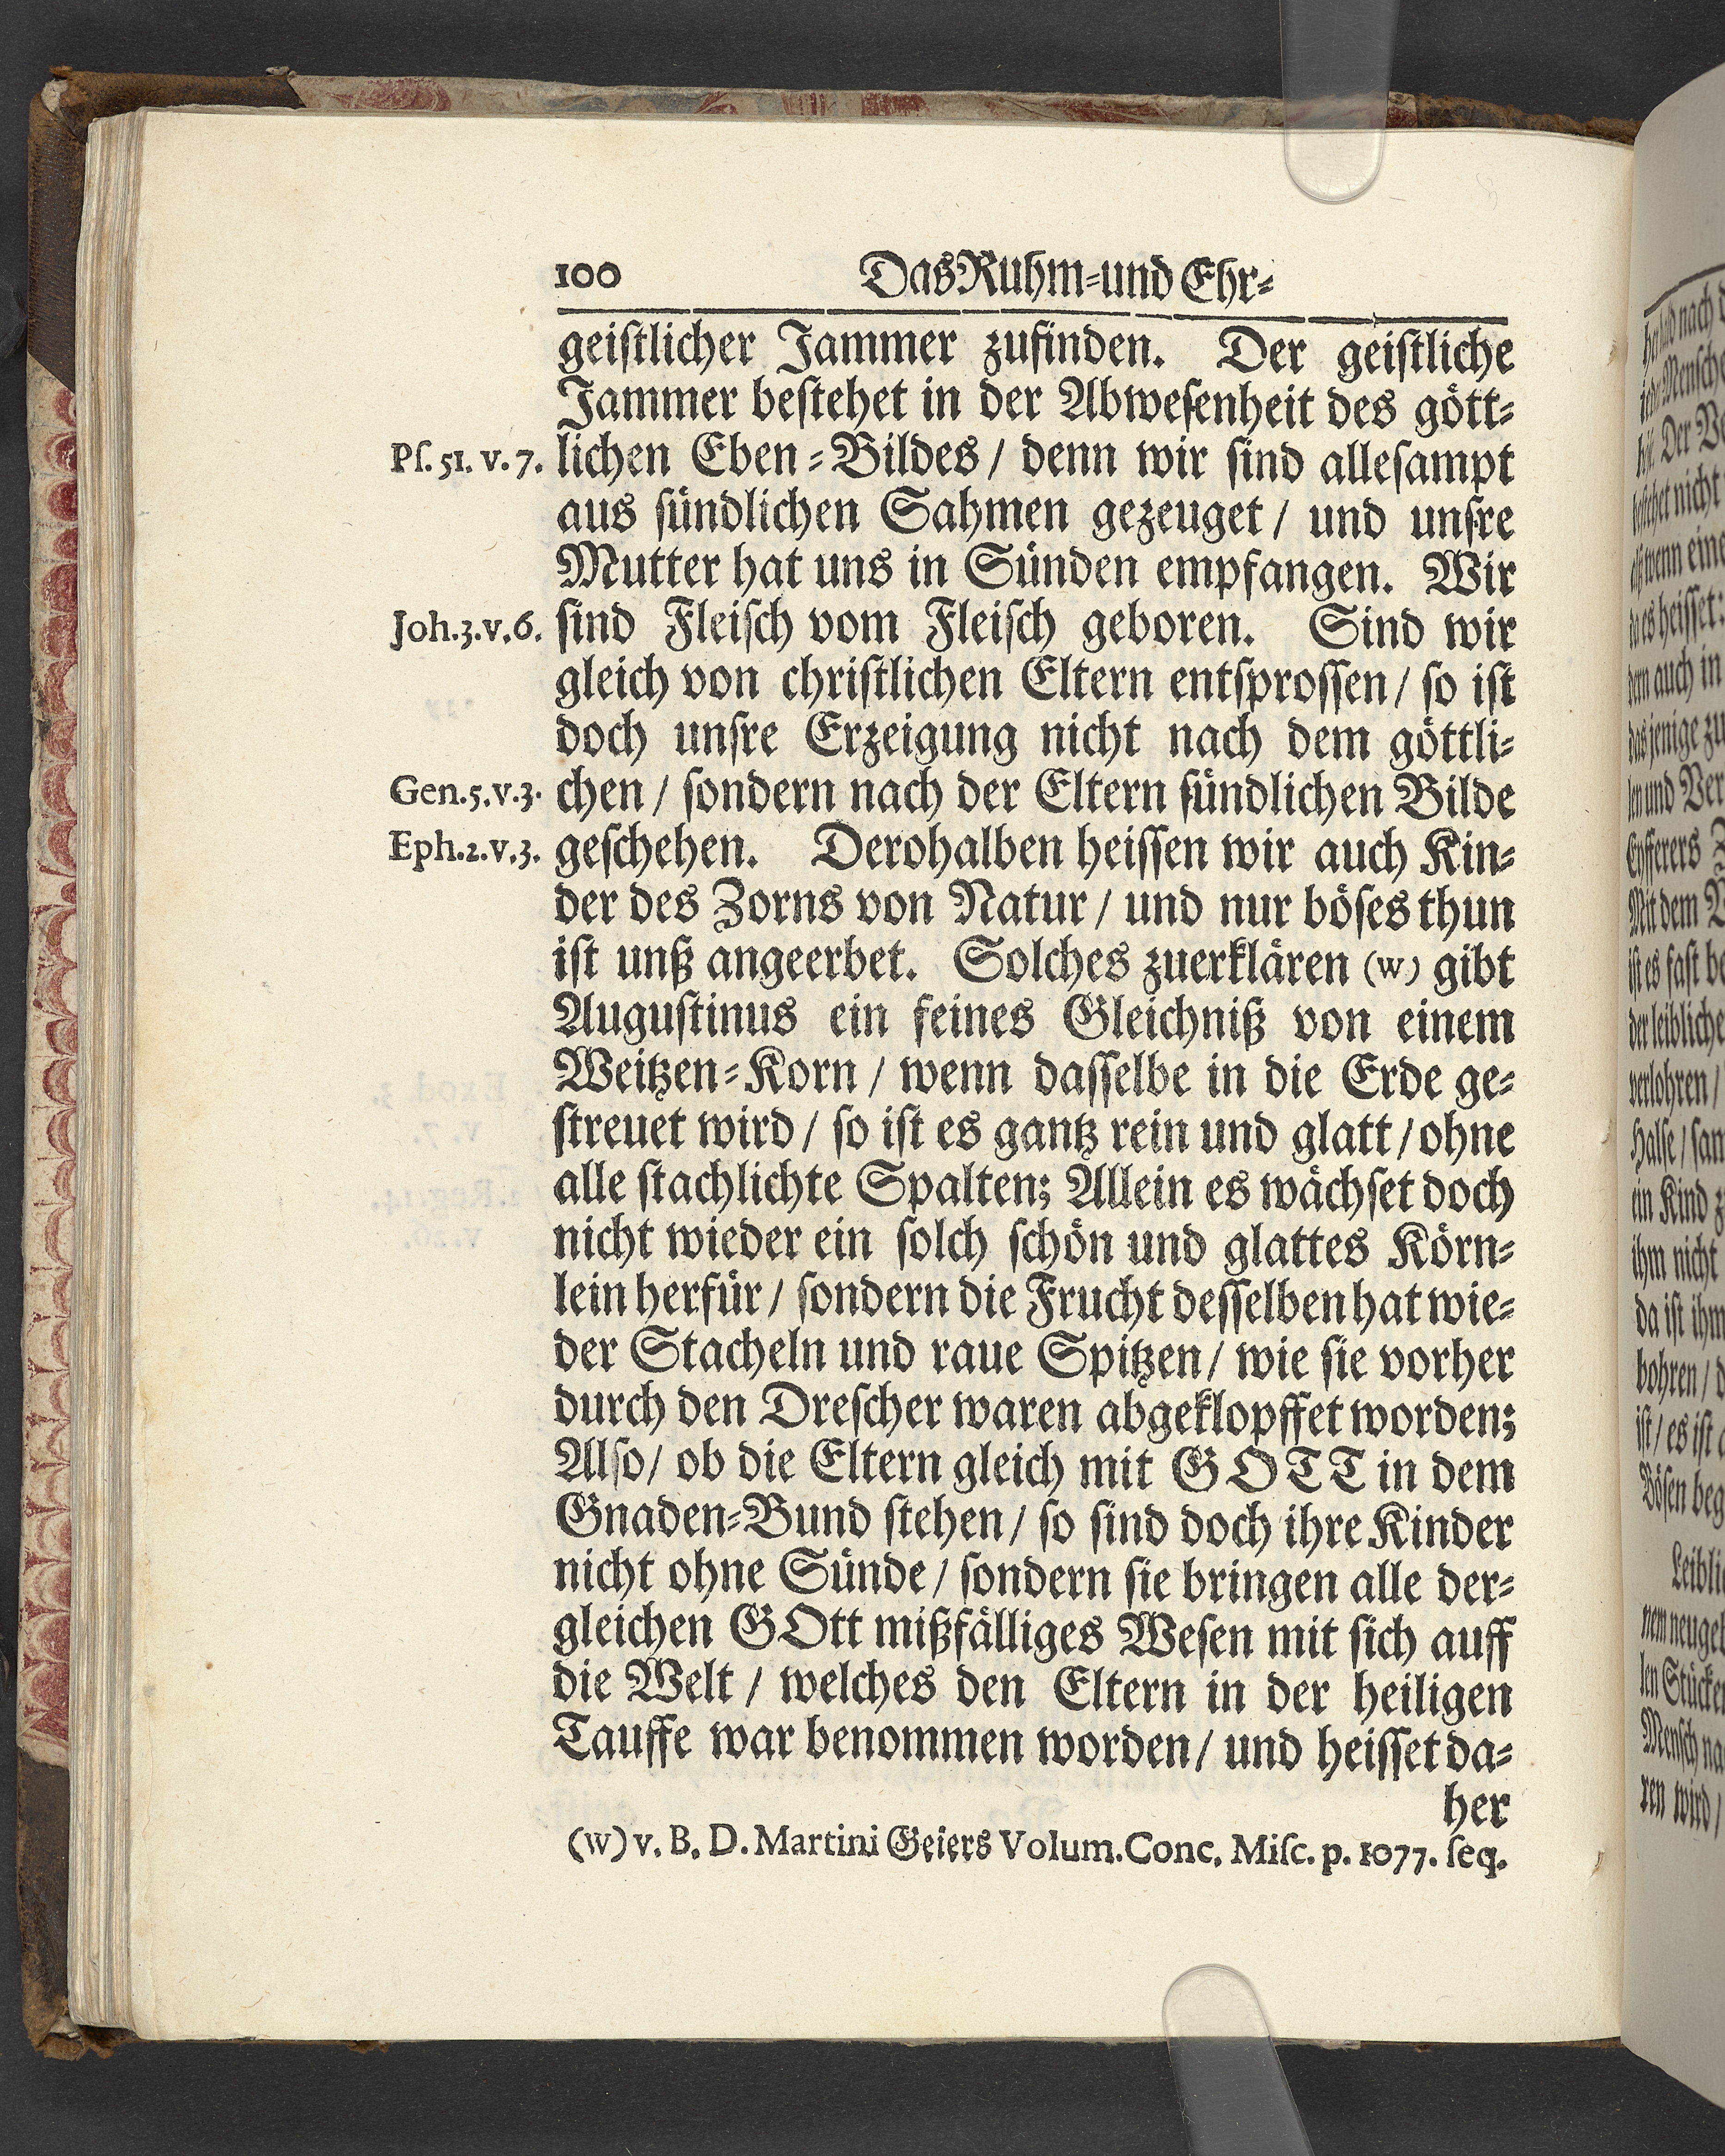 100 Das Ruhm-und Ehr-
geistlicher Jammer zufinden. Der geistliche
Jammer bestehet in der Abwesenheit des gött-
Ps. 51. v. 7. lichen Eben-Bildes / denn wir sind allesampt
aus sündlichen Sahmen gezeuget / und unsre
Mutter hat uns in Sünden empfangen. Wir
Joh. 3. v. 6. sind Fleisch vom Fleisch geboren. Sind wir
gleich von christlichen Eltern entsprossen / so ist
doch unsre Erzeigung nicht nach dem göttli-
Gen. 5. v. 3. chen / sondern nach der Eltern sündlichen Bilde
Eph. 2. v. 3. geschehen. Derohalben heissen wir auch Kin-
der des Zorns von Natur / und nur böses thun
ist unß angeerbet. Solches zuerklären (w) gibt
Augustinus ein feines Gleichniß von einem
Weitzen-Korn / wenn dasselbe in die Erde ge-
streuet wird / so ist es gantz rein und glatt / ohne
alle stachlichte Spalten; Allein es wächset doch
nicht wieder ein solch schön und glattes Körn-
lein herfür / sondern die Frucht desselben hat wie-
der Stacheln und raue Spitzen / wie sie vorher
durch den Drescher waren abgeklopffet worden;
Also / ob die Eltern gleich mit GOTT in dem
Gnaden-Bund stehen / so sind doch ihre Kinder
nicht ohne Sünde / sondern sie bringen alle der-
gleichen GOtt mißfälliges Wesen mit sich auff
die Welt / welches den Eltern in der heiligen
Tauffe war benommen worden / und heisset da-
her
(w) v. B. D. Martini Geiers Volum. Conc. Misc. p. 1077. seq.